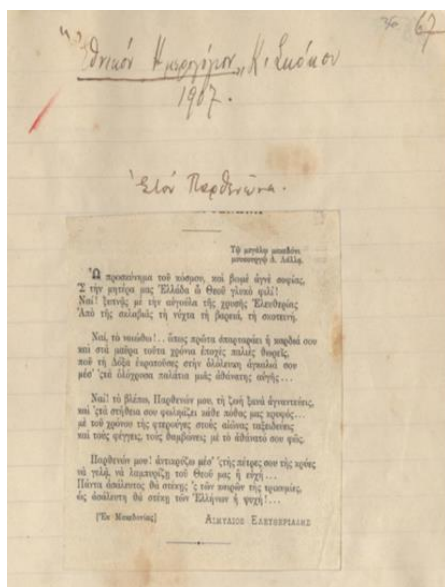 67
"Ἐθνικόν Ἡμερολόγιον" Κ. Σκόκου
1907.
Στόν Παρθενῶνα.
Τῷ μεγάλῳ μακεδόνι
μουσουργῷ Δ. Λάλλᾳ.
Ὦ προσκύνημα τοῦ κόσμου, καὶ βωμὲ ἁγνὲ σοφίας,
Σ τὴν μητέρα μας Ἑλλάδα ὦ Θεοῦ γλυκὸ φιλί!
Ναί! ξυπνᾷς μὲ τὴν αὐγοῦλα τῆς χρυσῆς Ἐλευθερίας
Ἀπὸ τῆς σκλαβιᾶς τὴ νύχτα τὴ βαρειά, τὴ σκοτεινή.
Ναί, τὸ νοιώθω!.. ὅπως πρῶτα σπαρταράει ἡ καρδιά σου
καὶ στὰ μαῦρα τοῦτα χρόνια ἐποχὲς παλιὲς θωρεῖς,
ποῦ τὴ Δόξα ἐκρατοῦσες στὴν ὁλόλευκη ἀγκαλιά σου
μέσ' 'ςτὰ ὁλόχρυσα παλάτια μιᾶς ἀθάνατης αὐγῆς...
Ναί! τὸ βλέπω, Παρθενών μου, τὴ ζωὴ ξανὰ ἀγναντεύεις,
καὶ 'ςτὰ στήθεια σου φωλιάζει κάθε πόθος μας κρυφός...
μὲ τοῦ χρόνου τῆς φτεροῦγες στοὺς αἰῶνας ταξειδεύεις
καὶ τοὺς φέγγεις, τοὺς θαμβώνεις μὲ τὸ ἀθάνατό σου φῶς.
Παρθενών μου! ἀντικρύζω μέσ' 'ςτῆς πέτρες σου τῆς κρύες
νὰ γελᾷ, νὰ λαμπυρίζῃ τοῦ Θεοῦ μας ἡ εὐχή...
Πάντα ἀσάλευτος θὰ στέκῃς 'ς τῶν καιρῶν τῆς τρικυμίες,
ὡς ἀσάλευτη θὰ στέκῃ τῶν Ἑλλήνων ἡ ψυχή!...
[Ἐκ Μακεδονίας] ΑΙΜΥΛΙΟΣ ΕΛΕΥΘΕΡΙΑΔΗΣ